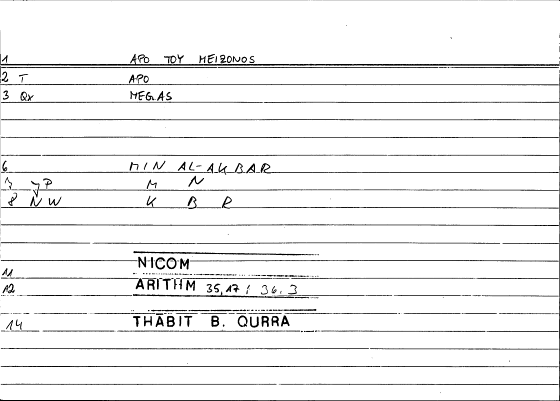 1 APO TOY MEIZONOS
2 T APO
3 Qx MEGAS
6 MIN AL-AKBAR
7 yP M N
8 NW K B R
NICOM
11
12 ARITHM 35,17 / 36.3
14 THĀBIT B. QURRA